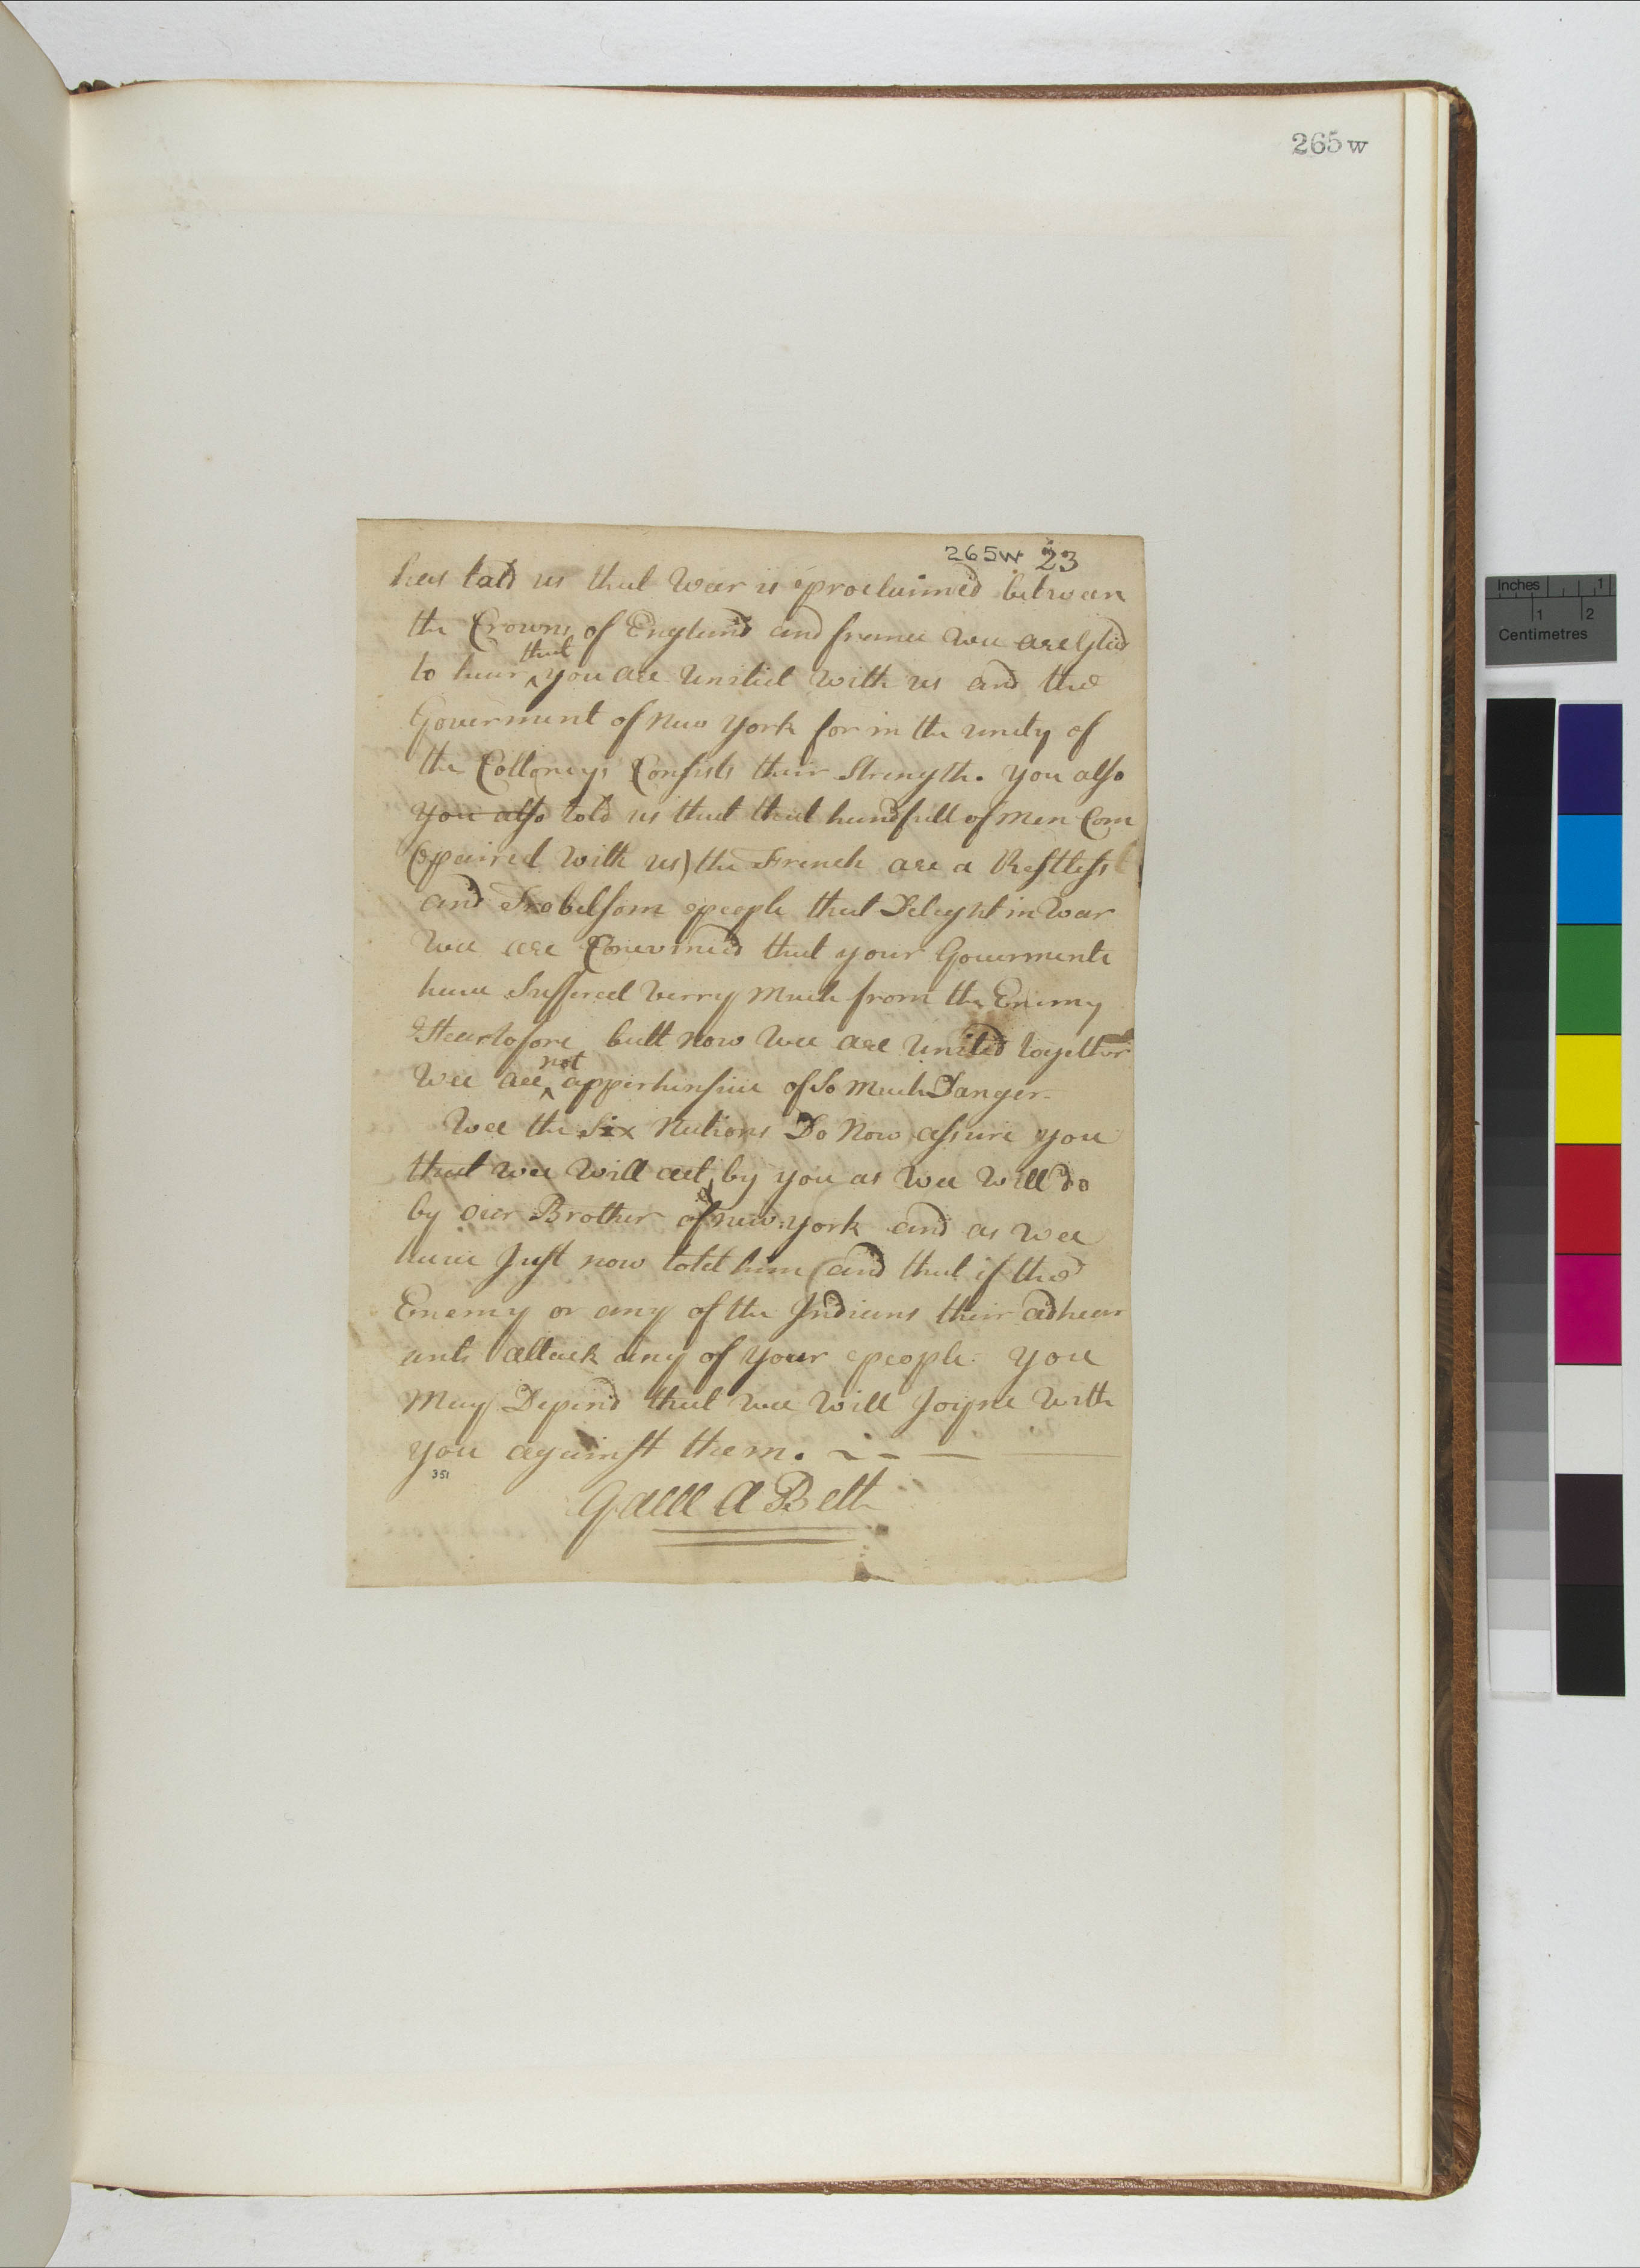 265w
265w. 23
has told us that War is proclaimed betwean
the Crowns of England and france Wee are Glad
that
to hear ^ you are Unitid With us and the
Goverment of New York for in the unety of
the Colloneys Consists their Strength. You also
you also told us that that handfull of Men Com
(paired With us) the French are a Restless
and Trobelsom people that Deleght in War
Wee are Convinced that your Gouerments
haue Suffered Verry Much from the Enimy
Heartofore butt Now Wee are United together
not
Wee are ^ apperhensiue of So Much Danger-
Wee the Six Nations Do Now assure you
that wee Will act by you as Wee Will do
by our Brother of new:york and as wee
haue Just now told him and that if the
Enemy or any of the Indians their adhear
ants attack any of Your people You
May Depend that wee Will Joyne With
you against them.
351
Gaue A Belt
Inches 1
1 2
Centimetres